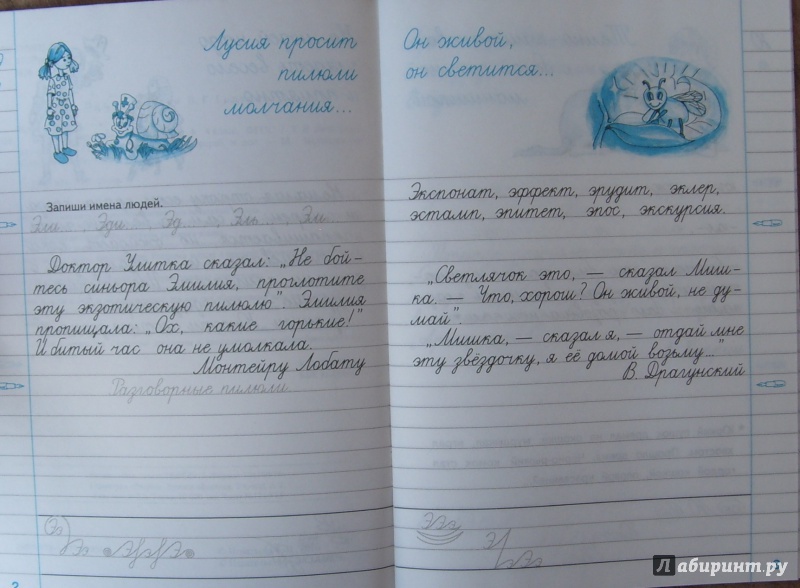 Лусия просит
пилюли
молчания...
Запиши имена людей.
Эми... Эди... Эд..., Эль..., Эм...
Доктор Улитка сказал: „Не бой-
тесь синьора Эмилия, проглотите
эту экзотическую пилюлю". Эмилия
пропищала: „Ох, какие горькие!"
И битый час она не умолкала.
Монтейру Лобату
Разговорные пилюли
Ээ
Ээ
Он живой,
он светится...
Экспонат, эффект, эрудит, эклер,
эстамп, эпитет, эпос, экскурсия.
„Светлячок это, — сказал Миш-
ка. — Что, хорош? Он живой, не ду-
май".
„Мишка, — сказал я, — отдай мне
эту звёздочку, я её домой возьму..."
В. Драгунский
Ээ
Лабиринт.ру